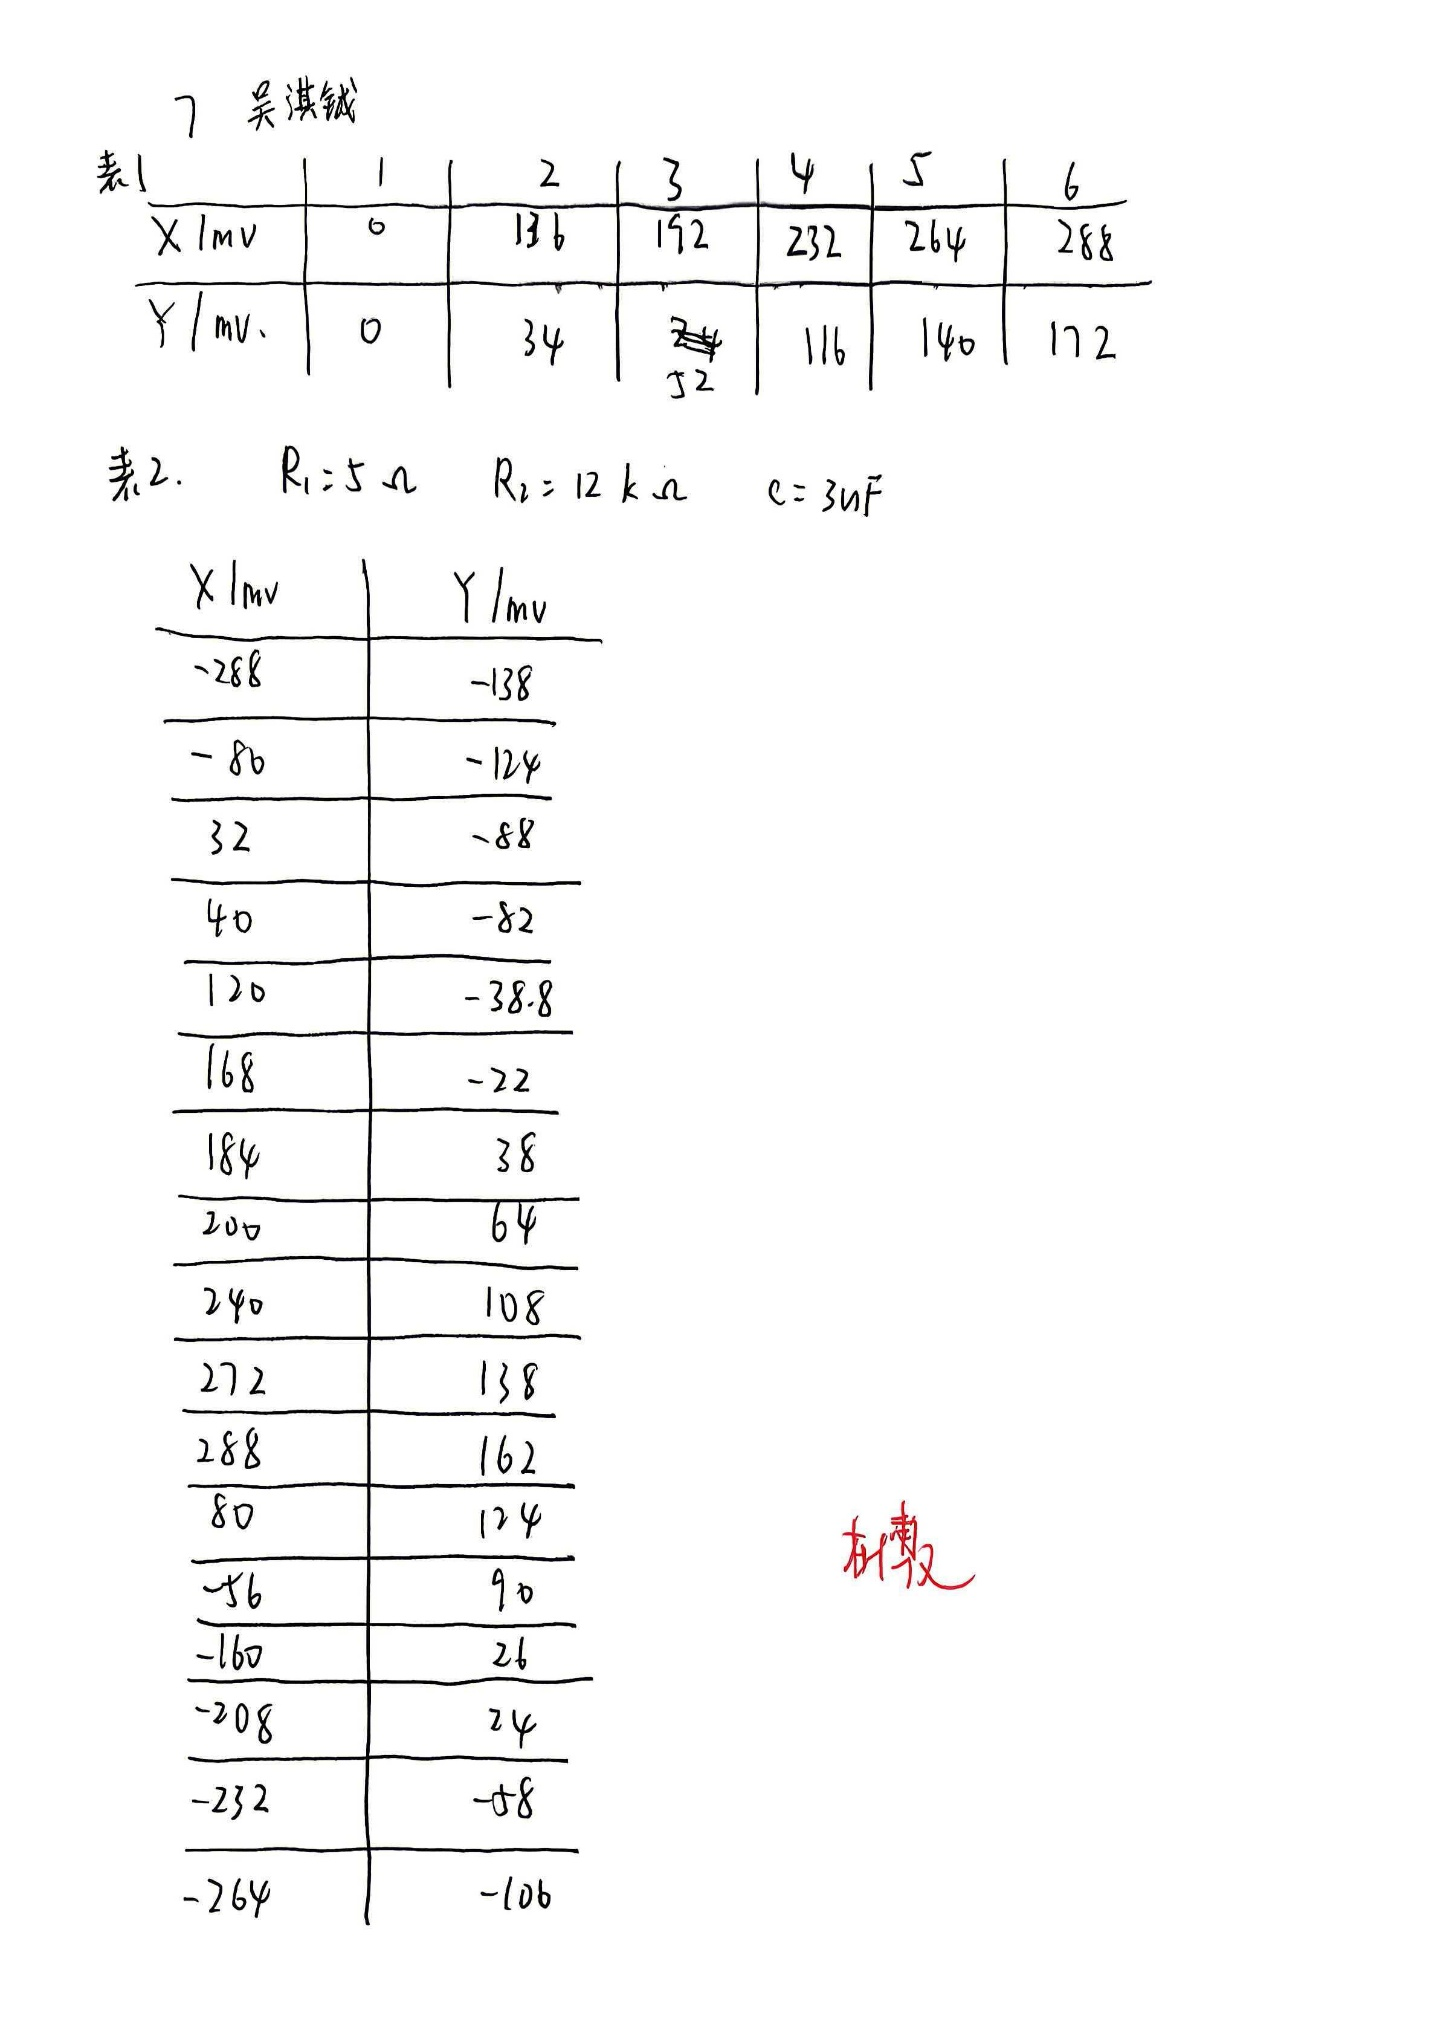 7 吴淇钺
表1 1 2 3 4 5 6
X/mv 0 136 192 232 264 288
Y/mv. 0 34 52 116 140 172
表2. R₁=5Ω R₂=12kΩ c=3uF
X/mv Y/mv
-288 -138
-80 -124
32 -88
40 -82
120 -38.8
168 -22
184 38
200 64
240 108
272 138
288 162
80 124
-56 90
-160 26
-208 24
-232 -58
-264 -106